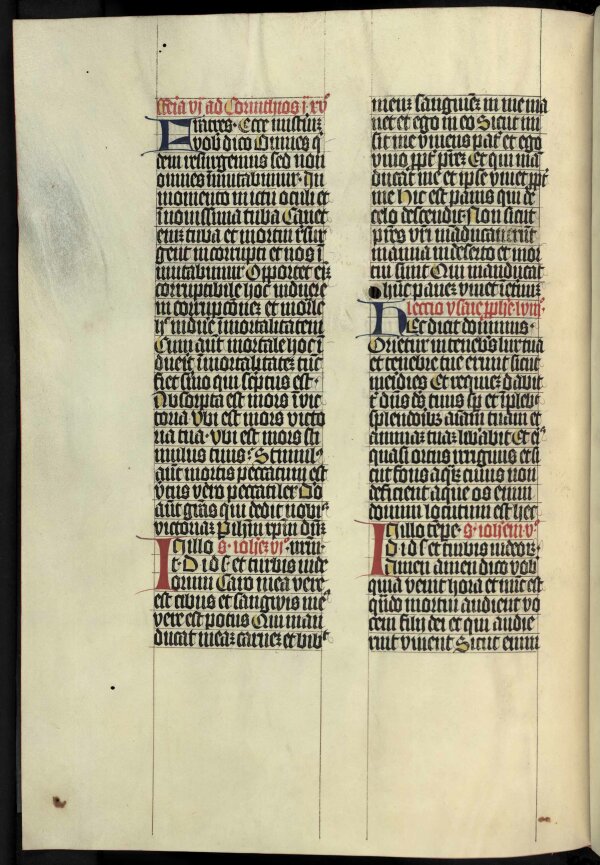 feria vi ad Corinthios i xv
Fratres Ecce misteriuʒ
vob dico Omnes qͥ
dem resurgemus sed non
omnes īmutabimur In
momento in ictu oculi et
ī novissima tuba Canet
eniʒ tuba et mortui rͤsur
gent incorrupti et nos ī
mutabimur Opportet eīʒ
corruptibile hoc induere
in corrupcōneʒ et mortͣle
hͦ induͤe īmortalitatem
Cum aūt mortale hoc ī
duerit īmortalitateʒ tūc
fiet sͤmo qui scͥptus est
Absorpta est mors ī vic
toria Vbi est mors victo
ria tua vbi est mors sti
mulus tuus Stimulꝰ
aūt mortis peccatum est
vͥtus vero peccati lex Deo
aūt grās qui dedit nobͥ
victoriaʒ P ihm xpm dnʒ
In illo g iohēʒ vi nrm
t D ihs et turbis iude
orum Caro mea vere
est cibus et sangwis meꝰ
vere est potus Qui man
ducat meaʒ carneʒ et bibͭ
meuʒ sanguineʒ in me ma
net et ego in eo Sicut mi
sit me vivens patͬ et ego
vivo ppt preʒ Et qui mā
ducat me et ipse vivet ppt
me Hic est panis qui de
celo descendit Non sicut
pres vri māducaverūt
manna in deserto et mor
tui sunt Qui manducat
hūc paneʒ vivet ī etnuʒ
Leccio ysaie pphe lviii
Hec dicit dominus
Orietur in tenebͥs lux tua
et tenebre tue erunt sicut
meͥdies Et requieʒ dabit
tͥ dns ds tuus sp et īplebͭ
splendoribʒ aīam tuam et
animaʒ tuaʒ lͥbabit Et eͥs
quasi ortus irriguus et si
cut fons aqͣʒ cuius non
deficient aque os enim
domini locutum est hec
In illo tēpe g iohem v
D ihs et turbis iudeoʒ
Amen amen dico vob
quia venit hora et nūc est
qūdo mortui audient vo
cem filii dei et qui audie
rint vivent Sicut enim